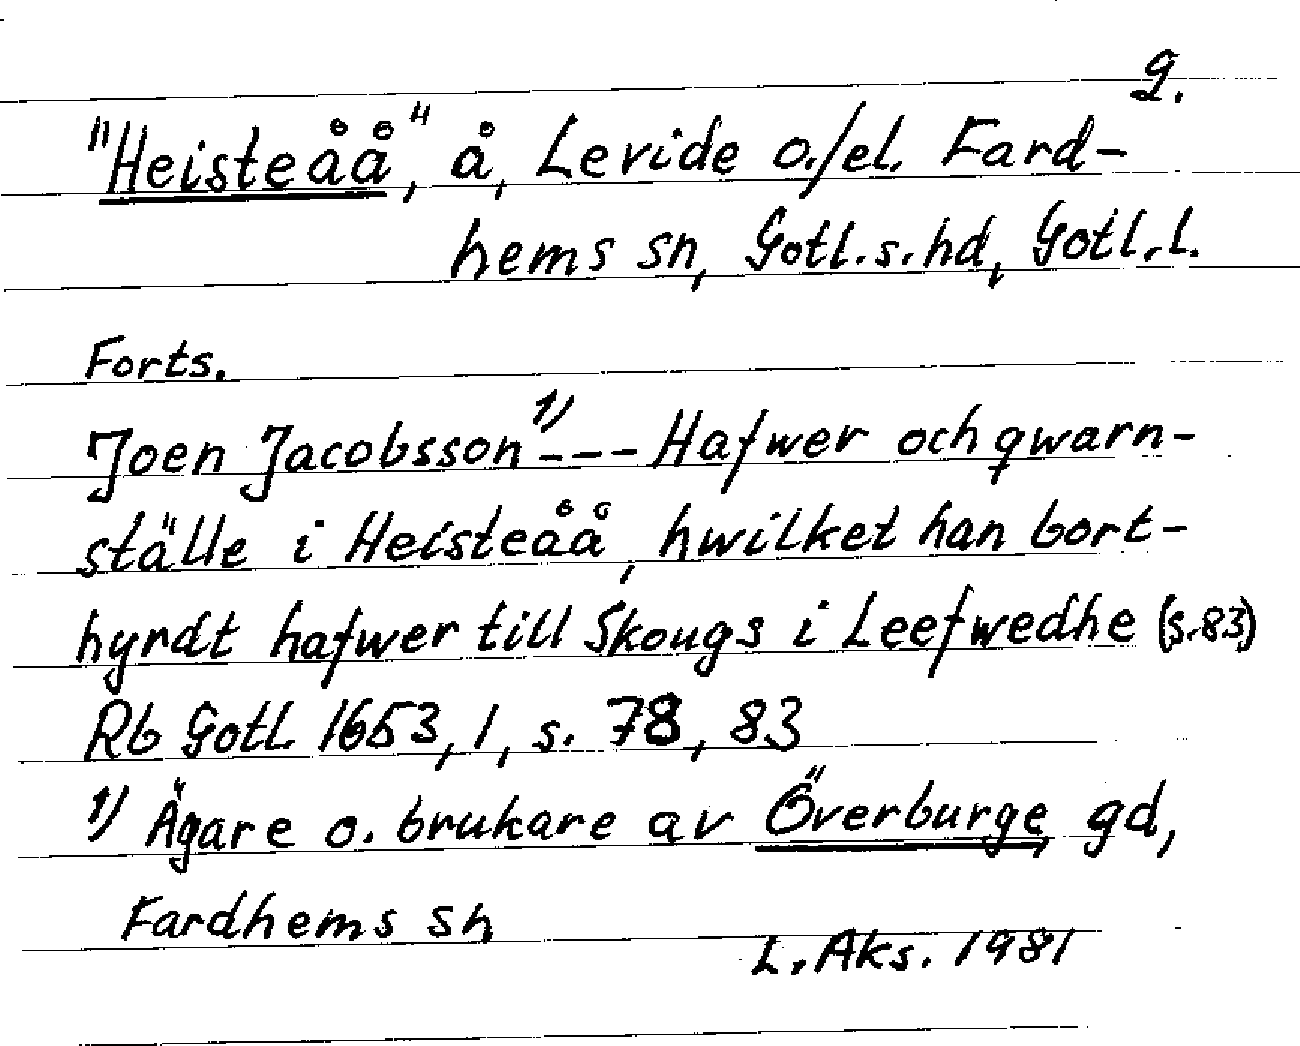 2.
"Heisteåå", å, Levide o./el. Fard-
hems sn, Gotl.s.hd, Gotl.l.
Forts.
Joen Jacobsson 1) --- Hafwer och qwarn-
ställe i Heisteåå, hwilket han bort-
hyrdt hafwer till Skougs i Leefwedhe (s.83)
Rb Gotl. 1653, 1, s. 78, 83
1) Ägare o. brukare av Överburge, gd,
Fardhems sn
L. Aks. 1981